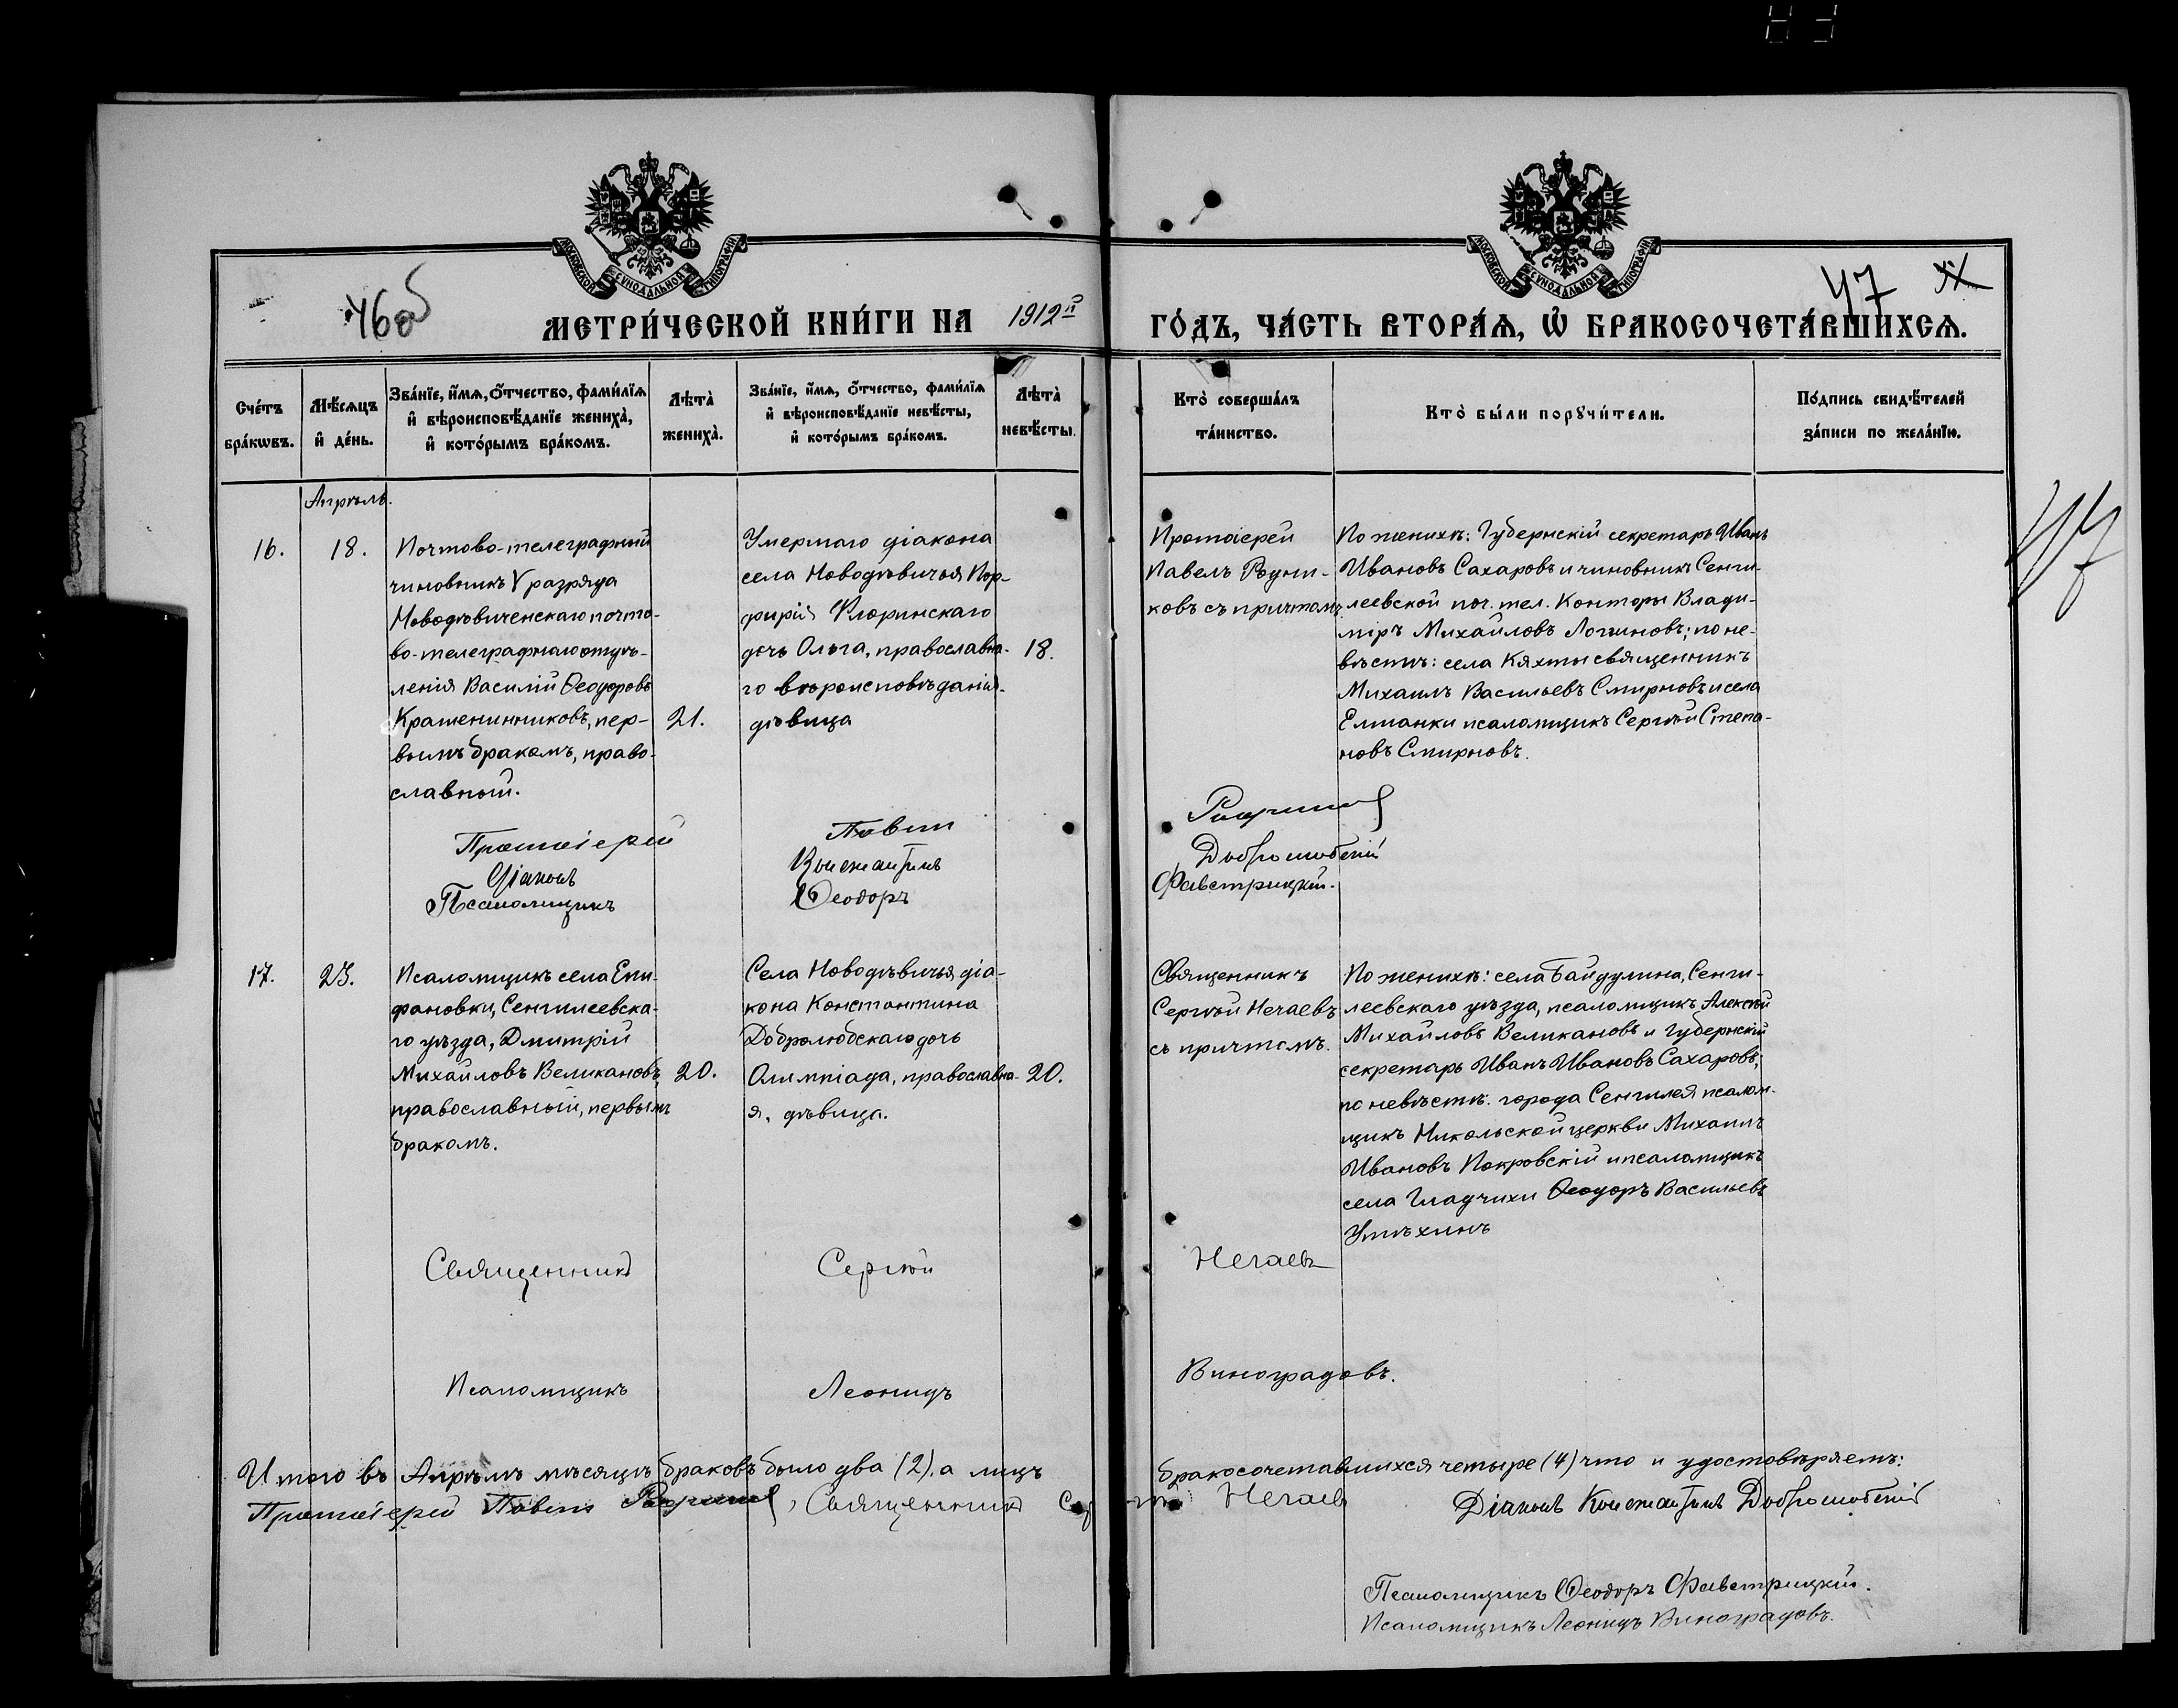 МОСКОВСКОЙ СѴНОДАЛЬНОЙ ТИПОГРАФІИ
МОСКОВСКОЙ СѴНОДАЛЬНОЙ ТИПОГРАФІИ
46об
47
МЕТРИ́ЧЕСКОЙ КНИ́ГИ НА 1912й ГО́ДЪ, ЧА́СТЬ ВТОРА́Ѧ, Ѽ БРАКОСОЧЕТА́ВШИХСѦ.
Сче́тъ бра́кѡвъ.
Мѣ́сяцъ и҆ де́нь.
Зва́нїе, и҆́мѧ, ѻ҆́тчество, фами́лїѧ
и҆ вѣроисповѣ́данїе жениха̀,
и҆ кото́рымъ бра́комъ.
Лѣта̀ жениха̀.
Зва́нїе, и҆́мѧ, ѻ҆́тчество, фами́лїѧ
и҆ вѣроисповѣ́данїе невѣ́сты,
и҆ кото́рымъ бра́комъ.
Лѣта̀ невѣ́сты.
Кто̀ соверша́лъ
та́инство.
Кто̀ бы́ли порꙋчи́тели.
По́дпись свидѣ́телей
за́писи по жела́нїю.
Апрѣль.
16.
18.
Почтово-телеграфный
чиновникъ V разряда
Новодѣвиченскаго почто-
во-телеграфнаго отдѣ-
ленія Василій Ѳеодоровъ
Крашенинниковъ, пер-
вымъ бракомъ, право-
славный.
21.
Умершаго діакона
села Новодѣвичья Пор-
фирія Флоринскаго
дочь Ольга, православна-
го вѣроисповѣданія
дѣвица
18.
Протоіерей
Павелъ Родни-
ковъ съ причтомъ
По женихѣ: Губернскій секретарь Иванъ
Ивановъ Сахаровъ и чиновникъ Сенги-
леевской поч. тел. Конторы Влади-
міръ Михайловъ Логиновъ; по не-
вѣстѣ: села Кяхты священникъ
Михаилъ Васильевъ Смирновъ и села
Елшанки псаломщикъ Сергѣй Степа-
новъ Смирновъ.
Протоіерей Павелъ Родниковъ
Діаконъ Константинъ Добролюбскій
Псаломщикъ Ѳеодоръ Фавстрицкій.
47
17.
23.
Псаломщикъ села Епи-
фановки, Сенгилеевска-
го уѣзда, Дмитрій
Михайловъ Великановъ,
православный, первымъ
бракомъ.
20.
Села Новодѣвичья діа-
кона Константина
Добролюбскаго дочь
Олимпіада, православна-
я, дѣвица.
20.
Священникъ
Сергѣй Нечаевъ
съ причтомъ.
По женихѣ: села Байдулина, Сенги-
леевскаго уѣзда, псаломщикъ Алексѣй
Михайловъ Великановъ и Губернскій
секретарь Иванъ Ивановъ Сахаровъ;
по невѣстѣ: города Сенгилея псалом-
щикъ Никольской церкви Михаилъ
Ивановъ Покровскій и псаломщикъ
села Гладчихи Ѳеодоръ Васильевъ
Утѣхинъ
Священникъ Сергѣй Нечаевъ
Псаломщикъ Леонидъ Виноградовъ.
Итого въ Апрѣлѣ мѣсяцѣ браковъ было два (2), а лицъ бракосочетавшихся четыре (4) что и удостовѣряемъ:
Протоіерей Павелъ Родниковъ, Священникъ Сергѣй Нечаевъ Діаконъ Константинъ Добролюбскій
Псаломщикъ Ѳеодоръ Фавстрицкій.
Псаломщикъ Леонидъ Виноградовъ.